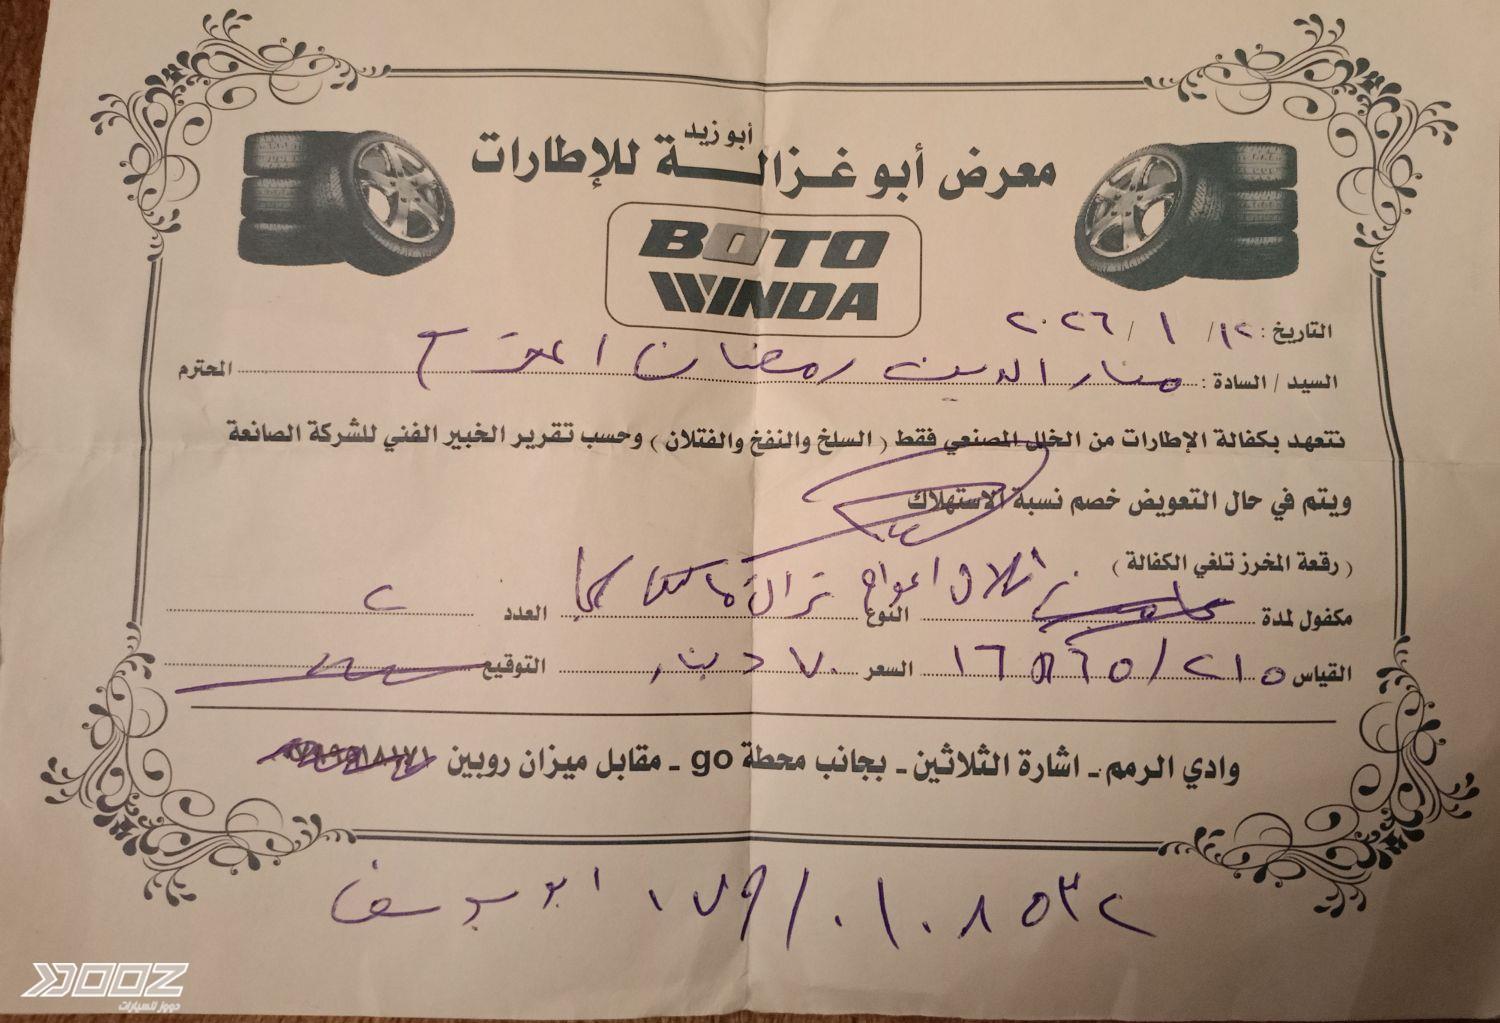 معرض أبو غزالة للإطارات
أبو زيد
BOTO
WINDA
التاريخ: ١٢/ ١ / ٢٠٢٦
السيد / السادة: منار الدين رمضان المحترم
نتعهد بكفالة الإطارات من الخلل المصنعي فقط ( السلخ والنفخ والفتلان ) وحسب تقرير الخبير الفني للشركة الصانعة
ويتم في حال التعويض خصم نسبة الاستهلاك
( رقعة المخرز تلغي الكفالة )
مكفول لمدة ثلاث اعوام النوع العدد ٢
القياس ٢١٥/٦٥ ١٦ السعر ٧٠ دينار التوقيع
وادي الرمم - اشارة الثلاثين - بجانب محطة go - مقابل ميزان روبين
ابو يوسف
DOOZ
دووز للسيارات